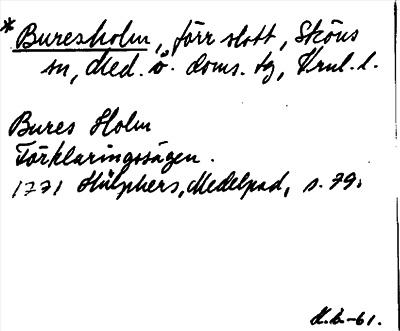 * Buresholm, förr slott, Sköns
sn, Med. v. doms. tg, Vnl. l.
Bures Holm
Förklaringssägen.
1771 Hülphers, Medelpad, s. 79.
H.b.-61.